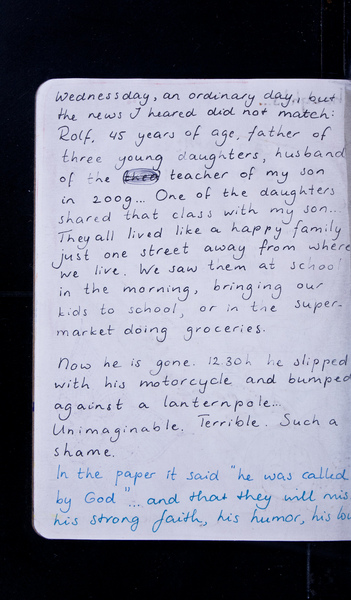 Wednessday, an ordinary day,, but
the news I heared did not match:
Rolf, 45 years of age, father of
three young daughters, husband
of the teacher of my son
in 2009... One of the daughters
shared that class with my son...
They all lived like a happy family
just one street away from where
we live. We saw them at school
in the morning, bringing our
kids to school, or in the super-
market doing groceries.
Now he is gone. 12.30h he slipped
with his motorcycle and bumped
against a lanternpole...
Unimaginable. Terrible. Such a
shame.
In the paper it said "he was called
by God"... and that they will mis
his strong faith, his humor, his lov